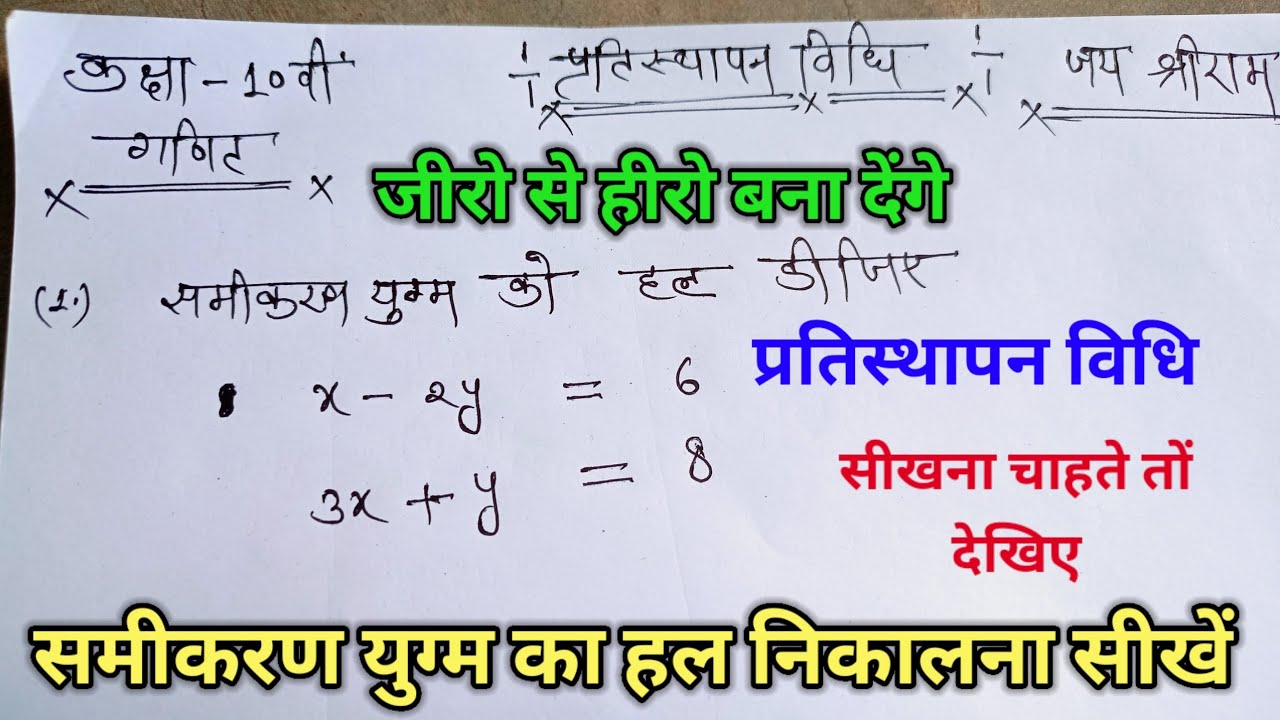 कक्षा - 10वीं
गणित
प्रतिस्थापन विधि
जय श्रीराम
जीरो से हीरो बना देंगे
(1.) समीकरण युग्म को हल कीजिए
x - 2y = 6
3x + y = 8
प्रतिस्थापन विधि
सीखना चाहते तों
देखिए
समीकरण युग्म का हल निकालना सीखें